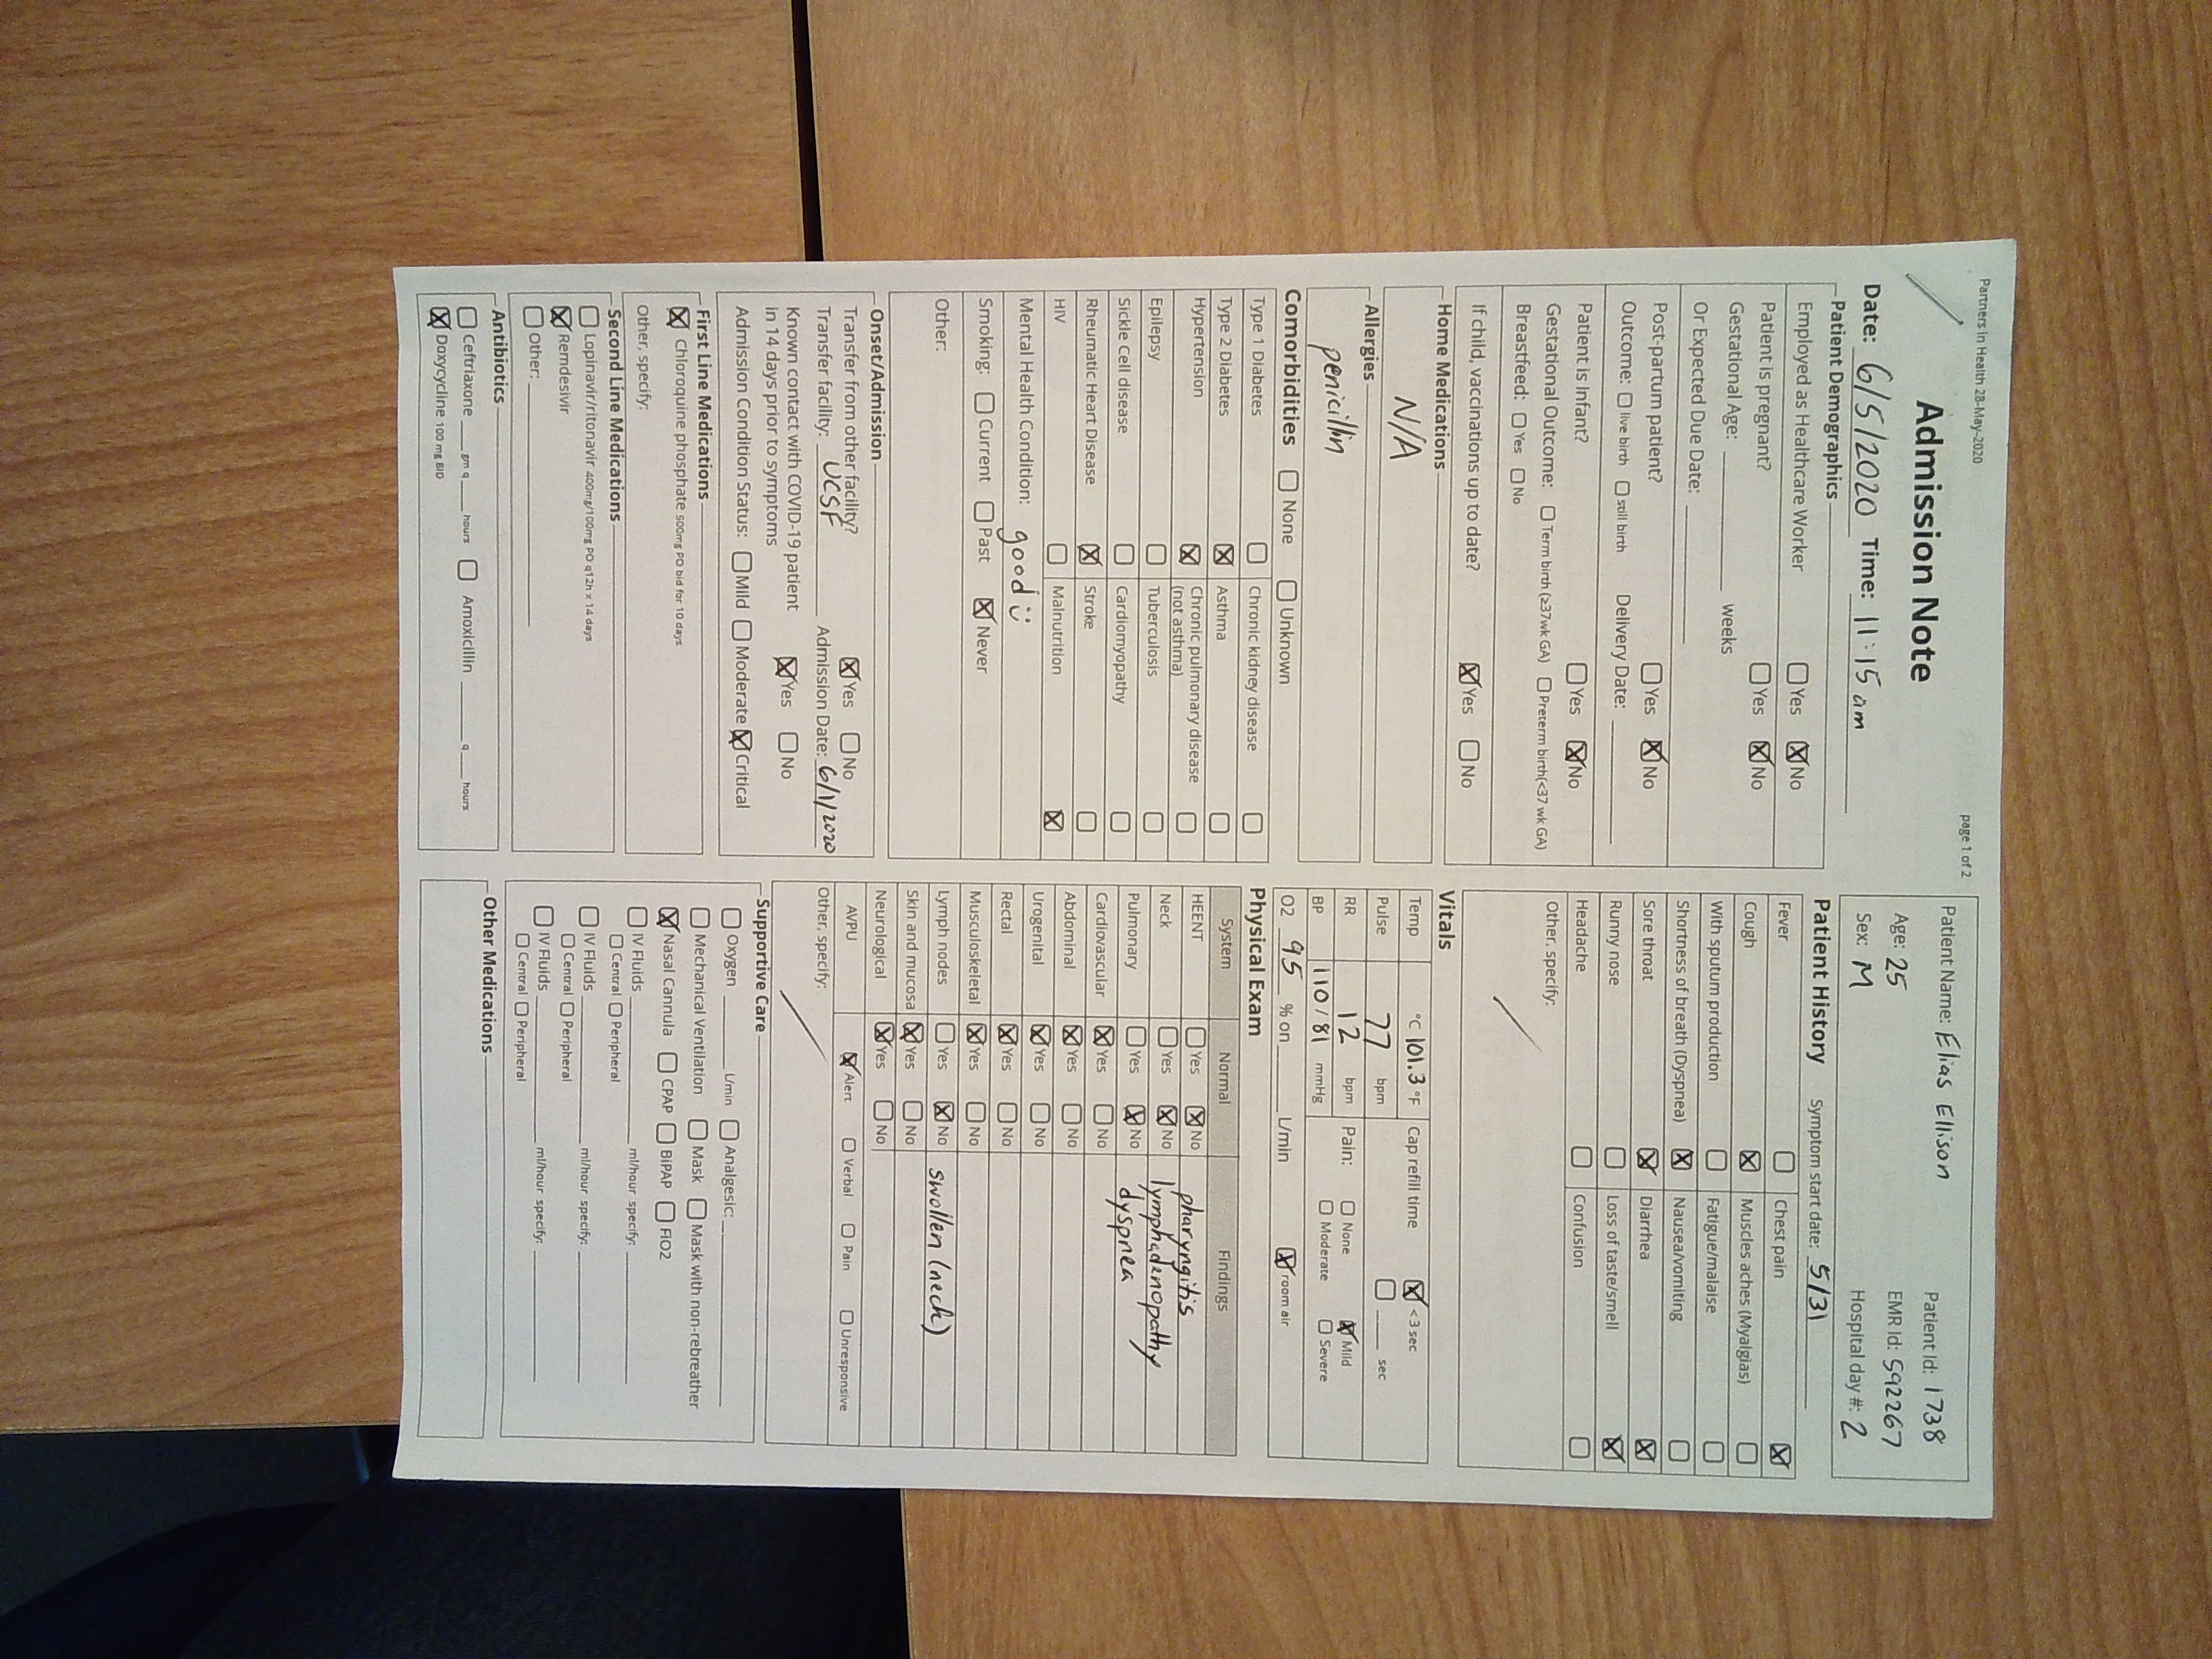 Partners In Health 28-May-2020
page 1 of 2
Admission Note
Date: 6/5/2020 Time: 11:15 am
Patient Demographics
Employed as Healthcare Worker ☐ Yes ☒ No
Patient is pregnant? ☐ Yes ☒ No
Gestational Age: ______ weeks
Or Expected Due Date: ______
Post-partum patient? ☐ Yes ☒ No
Outcome: ☐ live birth ☐ still birth Delivery Date: ______
Patient is Infant? ☐ Yes ☒ No
Gestational Outcome: ☐ Term birth (≥37wk GA) ☐ Preterm birth(<37 wk GA)
Breastfeed: ☐ Yes ☐ No
If child, vaccinations up to date? ☒ Yes ☐ No
Home Medications
N/A
Allergies
penicillin
Comorbidities ☐ None ☐ Unknown
Type 1 Diabetes ☐ Chronic kidney disease ☐
Type 2 Diabetes ☒ Asthma ☐
Hypertension ☒ Chronic pulmonary disease ☐
(not asthma)
Epilepsy ☐ Tuberculosis ☐
Sickle Cell disease ☐ Cardiomyopathy ☐
Rheumatic Heart Disease ☒ Stroke ☐
HIV ☐ Malnutrition ☒
Mental Health Condition: good :)
Smoking: ☐ Current ☐ Past ☒ Never
Other:
Onset/Admission
Transfer from other facility? ☒ Yes ☐ No
Transfer facility: UCSF Admission Date: 6/1/2020
Known contact with COVID-19 patient
in 14 days prior to symptoms ☒ Yes ☐ No
Admission Condition Status: ☐ Mild ☐ Moderate ☒ Critical
First Line Medications
☒ Chloroquine phosphate 500mg PO bid for 10 days
Other, specify:
Second Line Medications
☐ Lopinavir/ritonavir 400mg/100mg PO q12h x 14 days
☒ Remdesivir
☐ Other: ______
Antibiotics
☐ Ceftriaxone ____ gm q ____ hours ☐ Amoxicillin ____ q ____ hours
☒ Doxycycline 100 mg BID
Patient Name: Elias Ellison Patient Id: 1738
Age: 25 EMR Id: 592267
Sex: M Hospital day #: 2
Patient History Symptom start date: 5/31
Fever ☐ Chest pain ☒
Cough ☒ Muscles aches (Myalgias) ☐
With sputum production ☐ Fatigue/malaise ☐
Shortness of breath (Dyspnea) ☒ Nausea/vomiting ☐
Sore throat ☒ Diarrhea ☒
Runny nose ☐ Loss of taste/smell ☒
Headache ☐ Confusion ☐
Other, specify:
Vitals
Temp °C 101.3 °F Cap refill time ☒ < 3 sec
Pulse 77 bpm ☐ ____ sec
RR 12 bpm Pain: ☐ None ☒ Mild
BP 110 / 81 mmHg ☐ Moderate ☐ Severe
O2 95 % on ____ L/min ☒ room air
Physical Exam
System Normal Findings
HEENT ☐ Yes ☒ No pharyngitis
Neck ☐ Yes ☒ No lymphadenopathy
Pulmonary ☐ Yes ☒ No dyspnea
Cardiovascular ☒ Yes ☐ No
Abdominal ☒ Yes ☐ No
Urogenital ☒ Yes ☐ No
Rectal ☒ Yes ☐ No
Musculoskeletal ☒ Yes ☐ No
Lymph nodes ☐ Yes ☒ No swollen (neck)
Skin and mucosa ☒ Yes ☐ No
Neurological ☒ Yes ☐ No
AVPU ☒ Alert ☐ Verbal ☐ Pain ☐ Unresponsive
Other, specify:
Supportive Care
☐ Oxygen ______ L/min ☐ Analgesic: ______
☐ Mechanical Ventilation ☐ Mask ☐ Mask with non-rebreather
☒ Nasal Cannula ☐ CPAP ☐ BiPAP ☐ FiO2
☐ IV Fluids ______ ml/hour specify: ______
☐ Central ☐ Peripheral
☐ IV Fluids ______ ml/hour specify: ______
☐ Central ☐ Peripheral
☐ IV Fluids ______ ml/hour specify: ______
☐ Central ☐ Peripheral
Other Medications